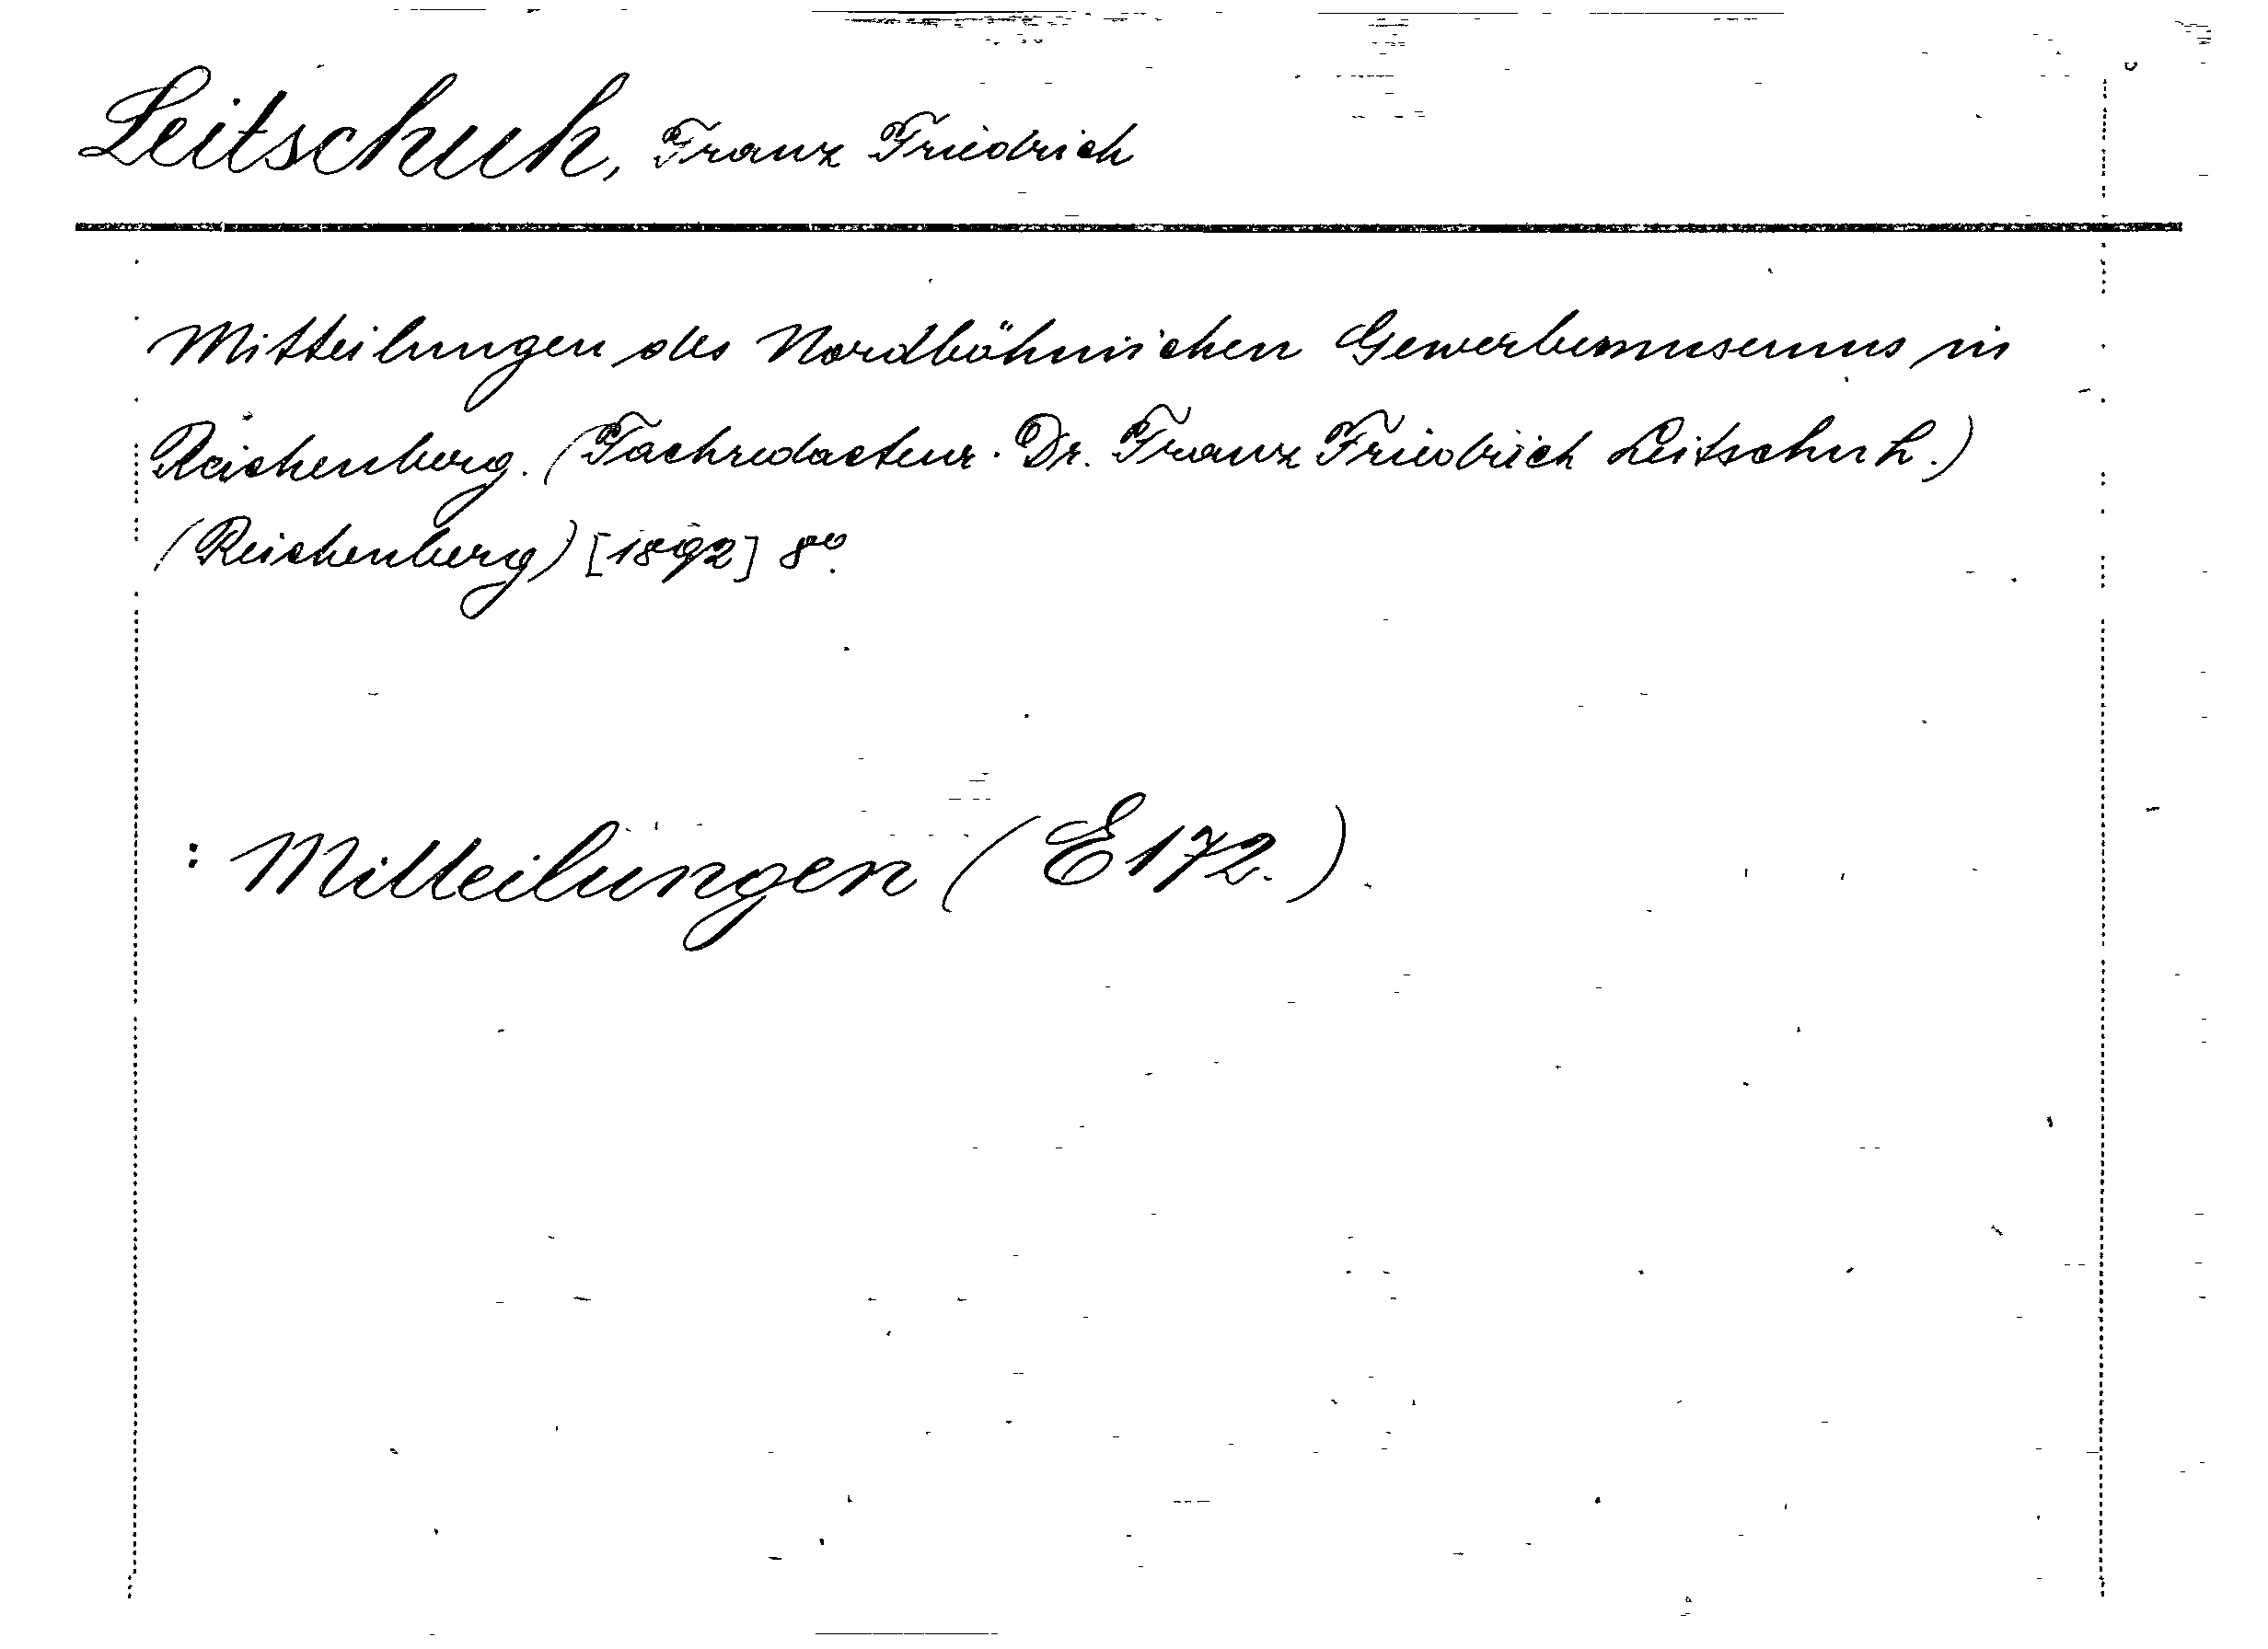 Leitschuh, Franz Friedrich
Mitteilungen des Nordböhmischen Gewerbemuseums in
Reichenberg. (Fachredacteur. Dr. Franz Friedrich Leitschuh.)
(Reichenberg) [1892] 8o.
: Mitteilungen (E172.)